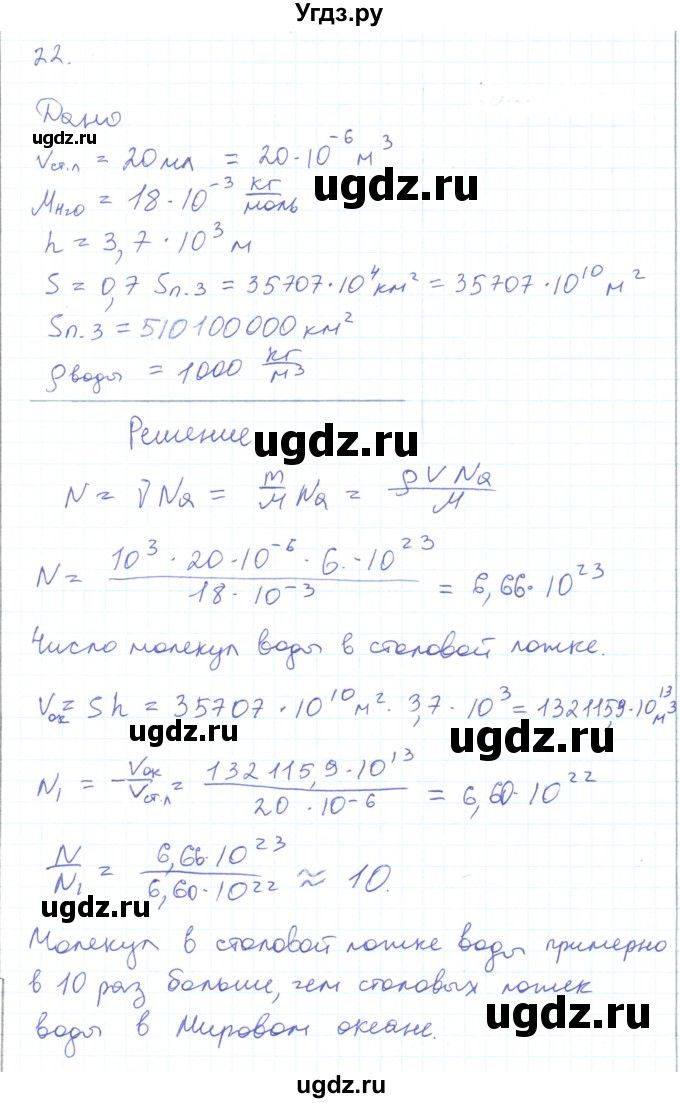 Угдз.ру
22.
Дано
ugdz.ru
Vст.л = 20 мл = 20·10⁻⁶ м³
ugdz.ru
Mн₂о = 18·10⁻³ кг/моль
h = 3,7·10³ м
S = 0,7 Sп.з = 35707·10⁴ км² = 35707·10¹⁰ м²
Sп.з = 510100000 км²
ρ воды = 1000 кг/м³
Решение
ugdz.ru
N = ν Nа = m/M Nа = ρ V Nа / M
N = 10³ · 20·10⁻⁶ · 6·10²³ / 18·10⁻³ = 6,66·10²³
ugdz.ru
Число молекул воды в столовой ложке.
Vок = Sh = 35707·10¹⁰ м² · 3,7·10³ = 132115,9·10¹³ м³
ugdz.ru
ugdz.ru
N₁ = Vок/Vст.л = 132115,9·10¹³ / 20·10⁻⁶ = 6,60·10²²
N/N₁ = 6,66·10²³ / 6,60·10²² ≈ 10.
ugdz.ru
Молекул в столовой ложке воды примерно
в 10 раз больше, чем столовых ложек
ugdz.ru
воды в Мировом океане.
ugdz.ru